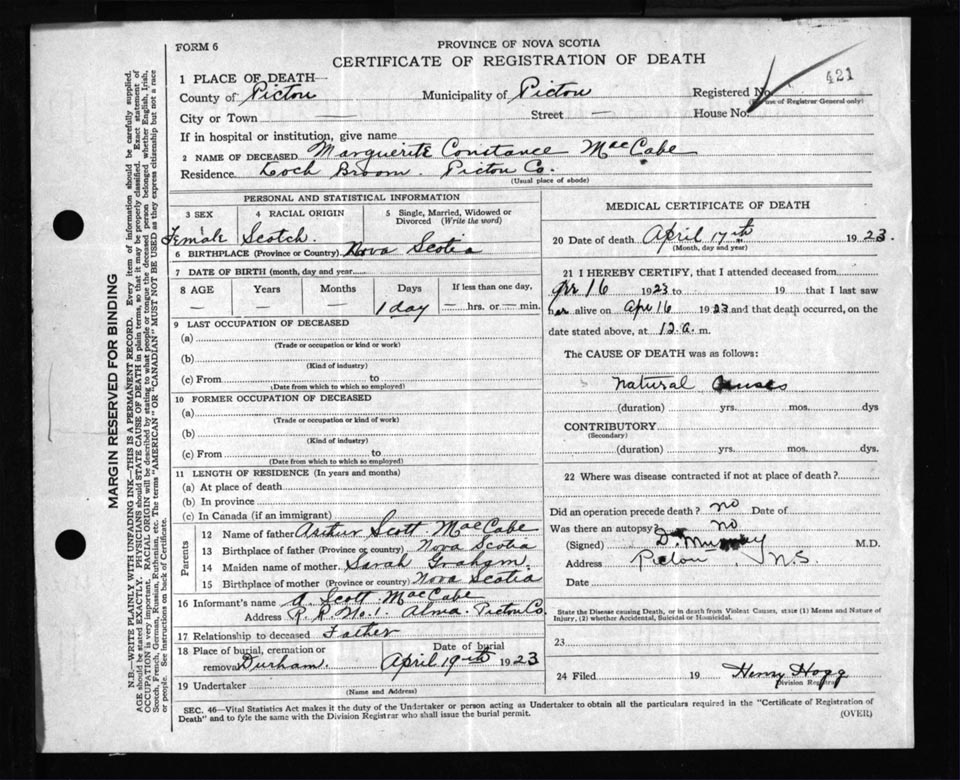 FORM 6
PROVINCE OF NOVA SCOTIA
CERTIFICATE OF REGISTRATION OF DEATH
1 PLACE OF DEATH—
421
County of Pictou Municipality of Pictou Registered No.
(For use of Registrar General only)
City or Town — Street — House No.
If in hospital or institution, give name
2 NAME OF DECEASED Marguerite Constance MacCabe
Residence. Loch Broom. Pictou Co.
(Usual place of abode)
PERSONAL AND STATISTICAL INFORMATION
3 SEX 4 RACIAL ORIGIN 5 Single, Married, Widowed or Divorced (Write the word)
Female Scotch.
6 BIRTHPLACE (Province or Country) Nova Scotia
7 DATE OF BIRTH (month, day and year)
8 AGE Years Months Days If less than one day,
— — 1 day — hrs. or — min.
9 LAST OCCUPATION OF DECEASED
(a)
(Trade or occupation or kind or work)
(b)
(Kind of industry)
(c) From to
(Date from which to which so employed)
10 FORMER OCCUPATION OF DECEASED
(a)
(Trade or occupation or kind of work)
(b)
(Kind of industry)
(c) From to
(Date from which to which so employed)
11 LENGTH OF RESIDENCE (In years and months)
(a) At place of death
(b) In province
(c) In Canada (if an immigrant)
Parents
12 Name of father Arthur Scott MacCabe
13 Birthplace of father (Province or country) Nova Scotia
14 Maiden name of mother. Sarah Graham.
15 Birthplace of mother (Province or country) Nova Scotia
16 Informant's name A. Scott MacCabe
Address R.R. No. 1. Alma. Pictou Co
17 Relationship to deceased Father
18 Place of burial, cremation or removal Durham. Date of burial April 19th 1923
19 Undertaker
(Name and Address)
MEDICAL CERTIFICATE OF DEATH
20 Date of death April 17th 1923.
(Month, day and year)
21 I HEREBY CERTIFY, that I attended deceased from
Apr 16 1923 to 19 that I last saw
her alive on Apr 16 1923 and that death occurred, on the
date stated above, at 12 a. m.
The CAUSE OF DEATH was as follows:
Natural Causes
(duration) yrs. mos. dys
CONTRIBUTORY
(Secondary)
(duration) yrs. mos. dys.
22 Where was disease contracted if not at place of death?
Did an operation precede death? no Date of
Was there an autopsy? no
(Signed) D. Murray M.D.
Address Pictou, N.S.
Date
State the Disease causing Death, or in death from Violent Causes, state (1) Means and Nature of
Injury, (2) whether Accidental, Suicidal or Homicidal.
23
24 Filed 19 Henry Hogg
Division Registrar
SEC. 46—Vital Statistics Act makes it the duty of the Undertaker or person acting as Undertaker to obtain all the particulars required in the "Certificate of Registration of
Death" and to fyle the same with the Division Registrar who shall issue the burial permit. (OVER)
MARGIN RESERVED FOR BINDING
N.B.—WRITE PLAINLY WITH UNFADING INK—THIS IS A PERMANENT RECORD. Every item of information should be carefully supplied.
AGE should be stated EXACTLY. PHYSICIANS should STATE CAUSE OF DEATH in plain terms, so that it may be properly classified. Exact statement of
OCCUPATION is very important. RACIAL ORIGIN will be described by stating to what people or tongue the deceased person belonged whether English, Irish,
Scotch, French, German, Russian, Ruthenian, etc. The terms "AMERICAN" OR "CANADIAN" MUST NOT BE USED as they express citizenship but not a race
or people. See instructions on back of Certificate.